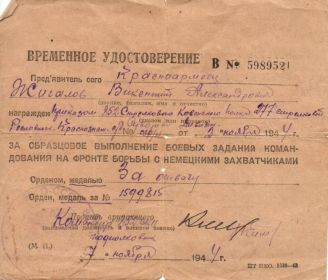 ВРЕМЕННОЕ УДОСТОВЕРЕНИЕ
В № 598952
Пред'явитель сего Красноармеец
Жигалов Викентий Александрович
(звание, фамилия, имя и отчество)
награжден приказом 850 Стрелкового Ковенского полка 277 стрелковой
3 ноября 1944 г.
ЗА ОБРАЗЦОВОЕ ВЫПОЛНЕНИЕ БОЕВЫХ ЗАДАНИЙ КОМАН-
ДОВАНИЯ НА ФРОНТЕ БОРЬБЫ С НЕМЕЦКИМИ ЗАХВАТЧИКАМИ
Орденом, медалью За отвагу
Орден, медаль за № 1599815
Подпись вручившего
Командир полка
подполковник
(М. П.) 7 ноября 1944 г.